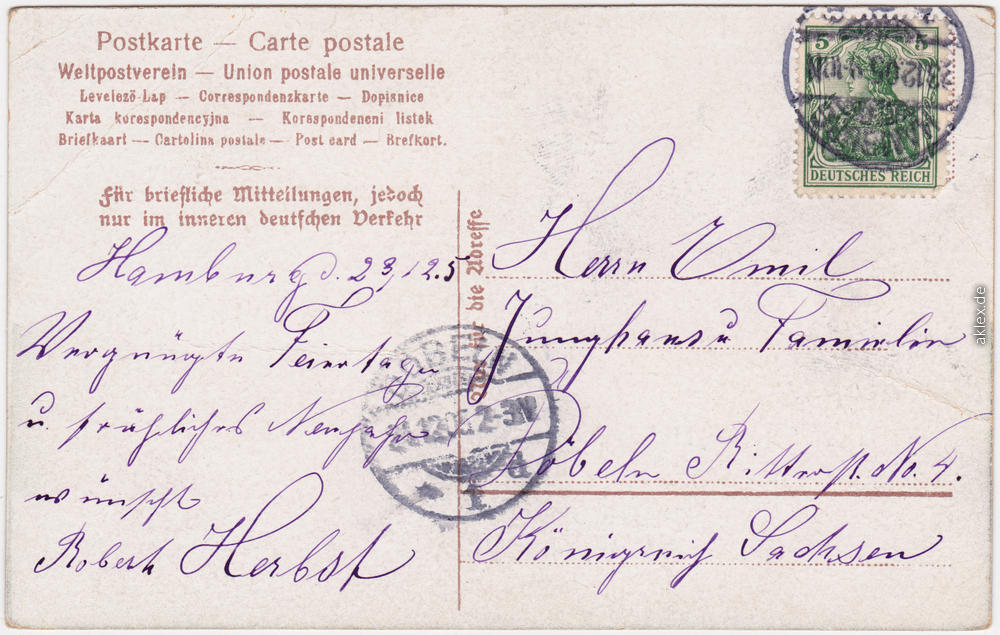 Postkarte — Carte postale
Weltpostverein — Union postale universelle
Levelező-Lap — Correspondenzkarte — Dopisnice
Karta korespondencyjna — Korespondencni listek
Briefkaart — Cartolina postale — Post card — Brefkort.
Für briefliche Mitteilungen, jedoch
nur im inneren deutschen Verkehr
Hamburg d. 23.12.5
Vergnügte Feiertage
u. fröhliches Neujahr
wünscht
Robert Herbst
Nur für die Adresse
5 5
DEUTSCHES REICH
Herrn Emil
Junghans u Familie
Döbeln Ritterst. No. 4.
Königreich Sachsen
DÖBELN
12.05 2-3N
1
aklex.de